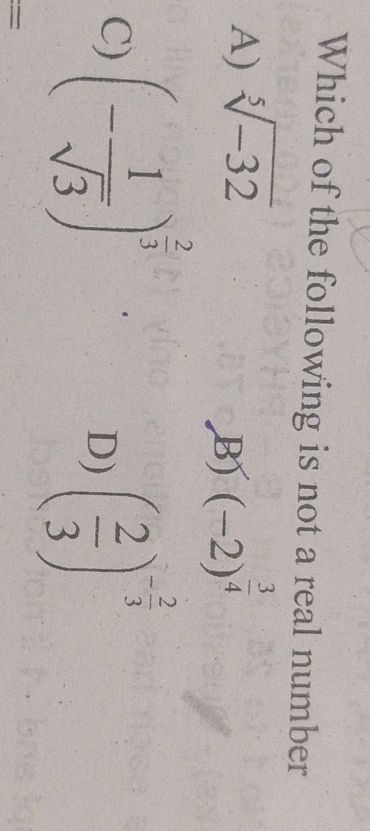 Which of the following is not a real number
A) ⁵√-32 B) (-2)^(3/4)
C) (-1/√3)^(2/3) D) (2/3)^(-2/3)